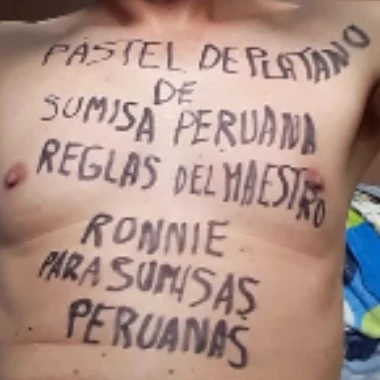 PASTEL DE PLATANO
DE
SUMISA PERUANA
REGLAS DEL MAESTRO
RONNIE
PARA SUMISAS
PERUANAS